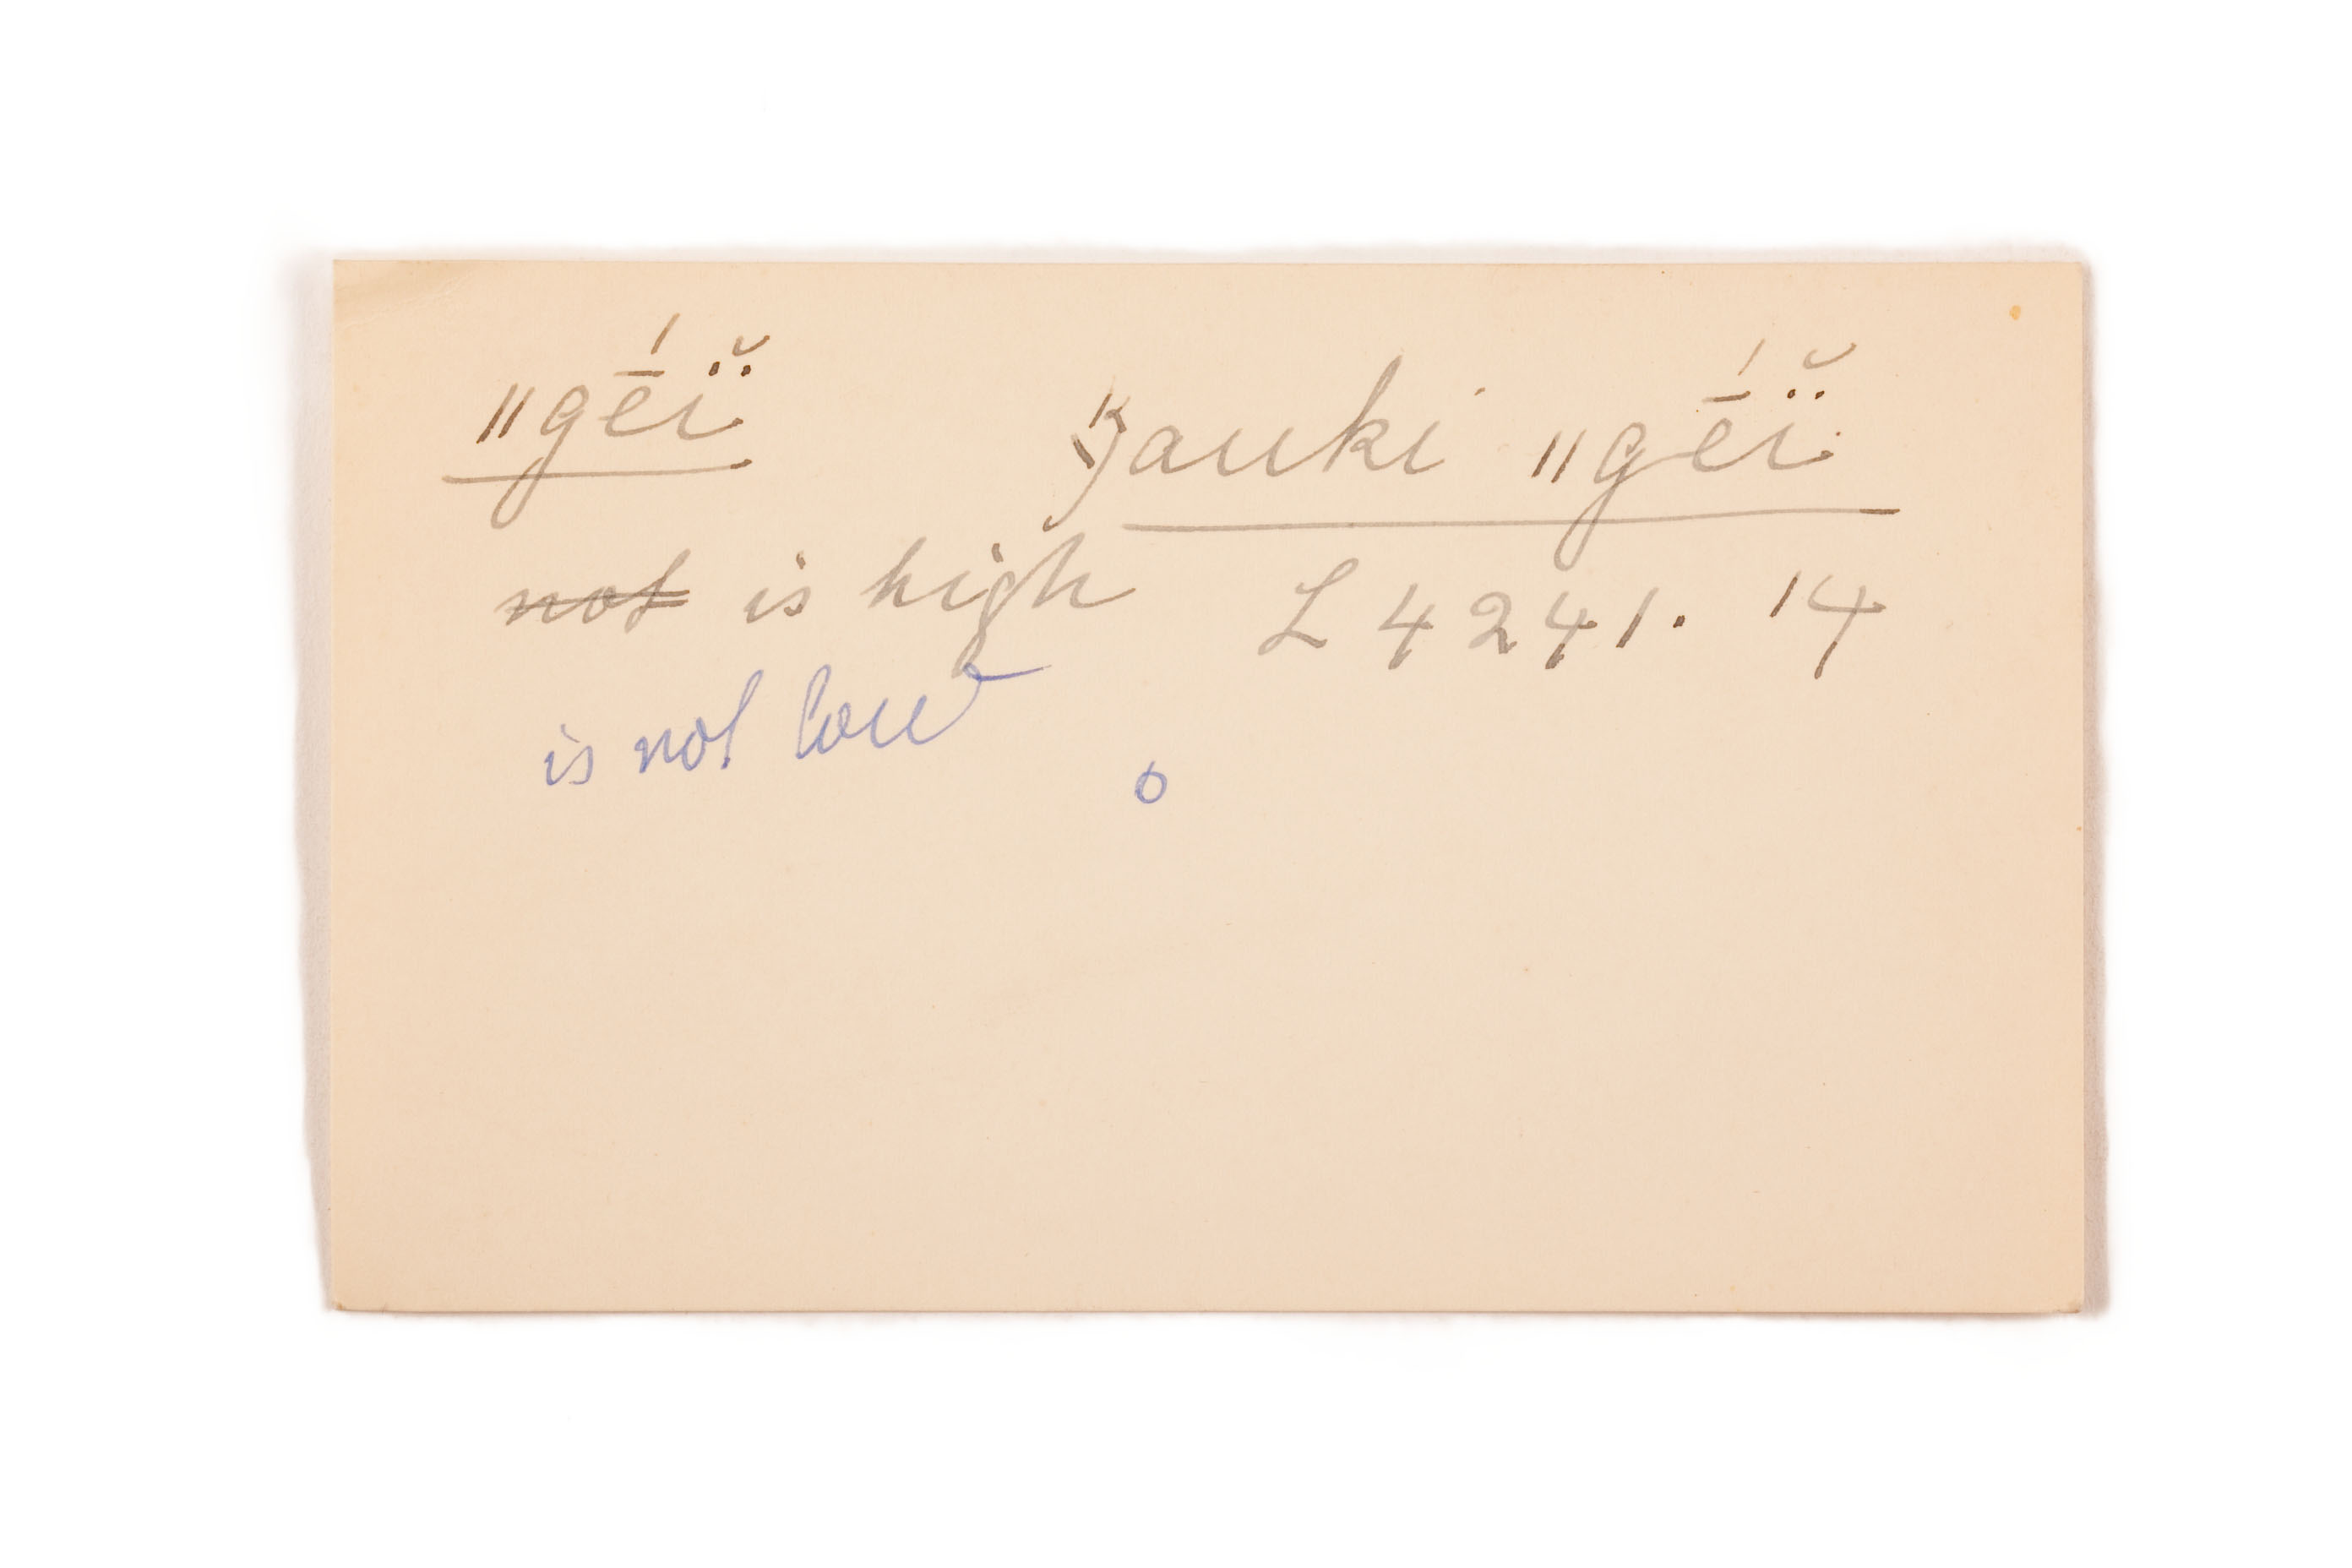 ǁgḗï̆ yauki ǁgḗï̆
~~not~~ is high L 4241. 14
is not low
o